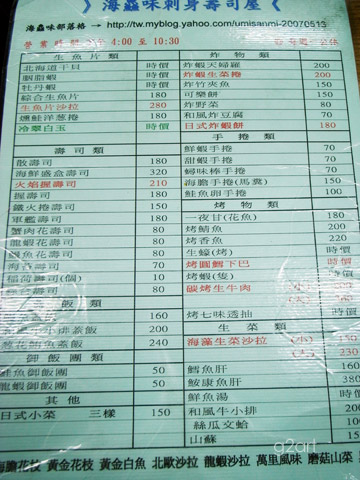 海蟲味刺身壽司屋
海蟲味部落格 → http://tw.myblog.yahoo.com/umisanmi-20070513
營業時間 4:00 至 10:30
生魚片類
北海道干貝 時價
胭脂蝦 時價
牡丹蝦 時價
綜合生魚片 180
生魚片沙拉 280
燻鮭洋蔥捲 180
冷翠白玉 時價
壽司類
散壽司 180
海鮮盛盒壽司 320
火焰握壽司 210
握壽司 180
鐵火捲壽司 150
軍艦壽司 180
蟹肉花壽司 80
龍蝦花壽司 80
魚花壽司 80
海苔壽司 70
稻荷壽司(個) 10
壽司 80
飯類
160
牛小排蓋飯 200
蔥花鮪魚蓋飯 240
御飯團類
鮭魚御飯團 50
龍蝦御飯團 50
其他
日式小菜 三樣 150
炸物類
炸蝦天婦羅 200
炸蝦生菜捲 200
炸竹夾魚 150
可樂餅 150
炸野菜 80
和風炸豆腐 70
日式炸蝦餅 180
手捲類
鮮蝦手捲 70
甜蝦手捲 70
蟳味棒手捲 70
海膽手捲(馬糞) 150
鮭魚卵手捲 100
烤物類
一夜甘(花魚) 200
烤鯖魚 200
烤香魚 220
生蠔(烤) 時價
烤圓鱈下巴 時價
烤蝦(隻) 時價
碳烤生牛肉
烤七味透抽 時價
生菜類
海藻生菜沙拉 (小) 150
(大) 230
鱈魚肝 時價
鮟康魚肝 時價
鮮魚湯 時價
和風牛小排
絲瓜文蛤
山蘇
海膽花枝 黃金花枝 黃金白魚 北歐沙拉 龍蝦沙拉 萬里風味 磨菇山菜